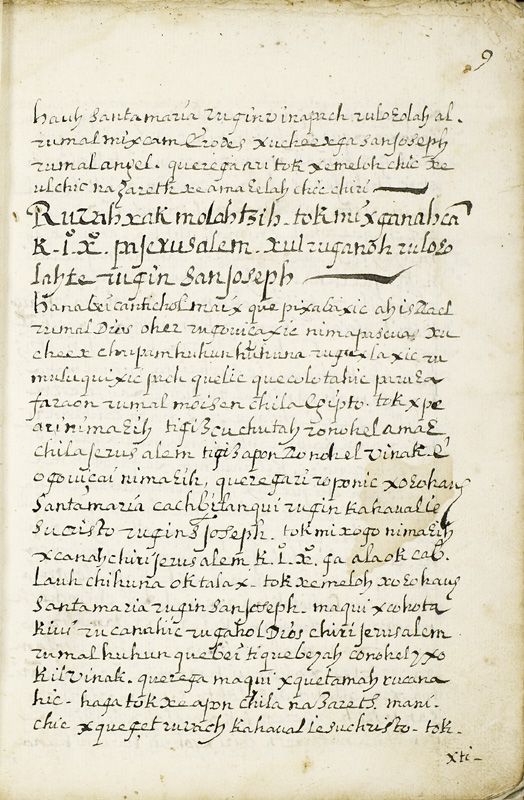 9
hauh Santa maria rugin vinapach ruloʒolah al.
rumal mixcam Erodes xucheexga San Joseph
rumal angel. querega ari tok xemeloh chic xe
ulchic naZareth xe amaʒelah chic chiri
Ruzah xak molahtzih. tok mixganahcã
K. I. X. pa Jerusalem. xul ruganoh ruloʒo
lahte rugin San Joseph
hanabei cantichol maix que pixabaxic ah isRael
rumal Dios oher rugovicaxic nima pascua xu
cheex chupam huhun huhuna rugexlaxic ru
muluquixic pach quelic que colotahic paruʒa
faraon rumal moisen chila Egipto. tok xpe
ari nimaʒih tiqiʒcuchutah ronohel amaʒ
chila Jerusalem tiqiʒapon Ronohel vinak. E
ogovicai nimaʒih, queregari roponic xoʒohauh
Santa maria cachbilanqui rugin Kahaval ie
Sucristo rugin S Joseph. tok mixogo nimaʒih
xcanah chiri jerusalem K. I. X. ga ala ok cab.
Lauh chihuna ok talax. tok xemeloh xoʒohauh
Santa maria rugin San Joseph. maqui xcohota
Kivi rucanahic rugahol Dios chiri jerusalem
rumal huhun quebei tiquebeyah conohel yxo
Kil vinak. querega maqui xquetamah rucana
hic. haga tok xe apon chila naZareth. mani
chic xqueget ruvach Kahaval iesuchristo. tok.
xti-